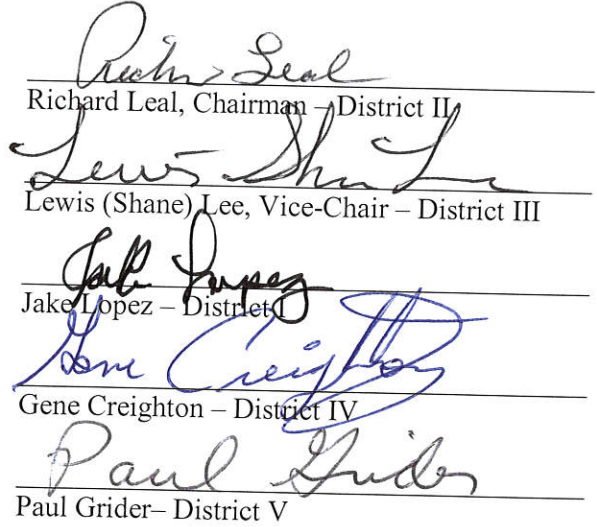 Richard Leal
Richard Leal, Chairman – District II
Lewis Shane Lee
Lewis (Shane) Lee, Vice-Chair – District III
Jake Lopez
Jake Lopez – District I
Gene Creighton
Gene Creighton – District IV
Paul Grider
Paul Grider– District V